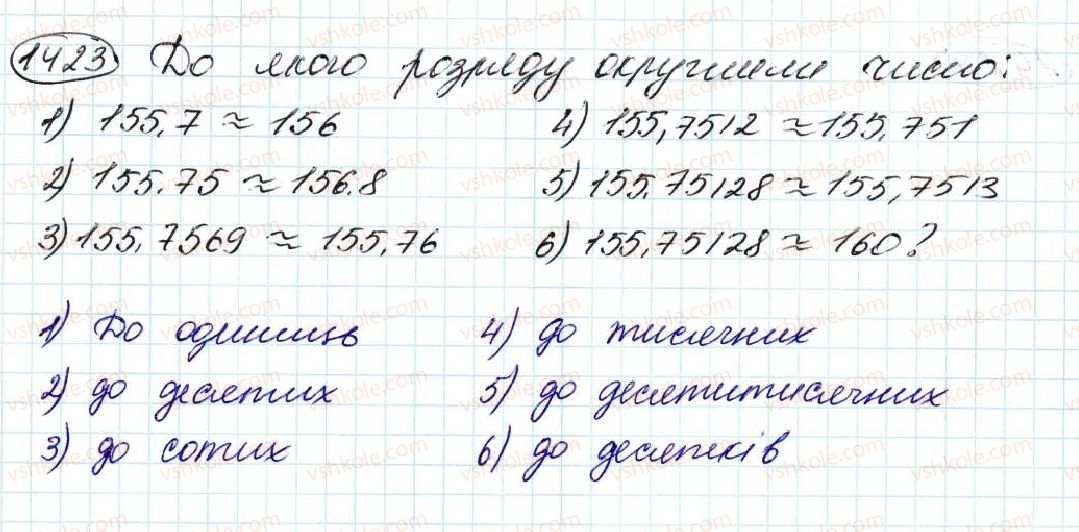 1423 До якого розряду округлили число:
1) 155,7 ≈ 156 4) 155,7512 ≈ 155,751
2) 155,75 ≈ 156,8 5) 155,75128 ≈ 155,7513
3) 155,7569 ≈ 155,76 6) 155,75128 ≈ 160?
1) До одиниць 4) до тисячних
2) до десятих 5) до десятитисячних
3) до сотих 6) до десятків
vshkole.com